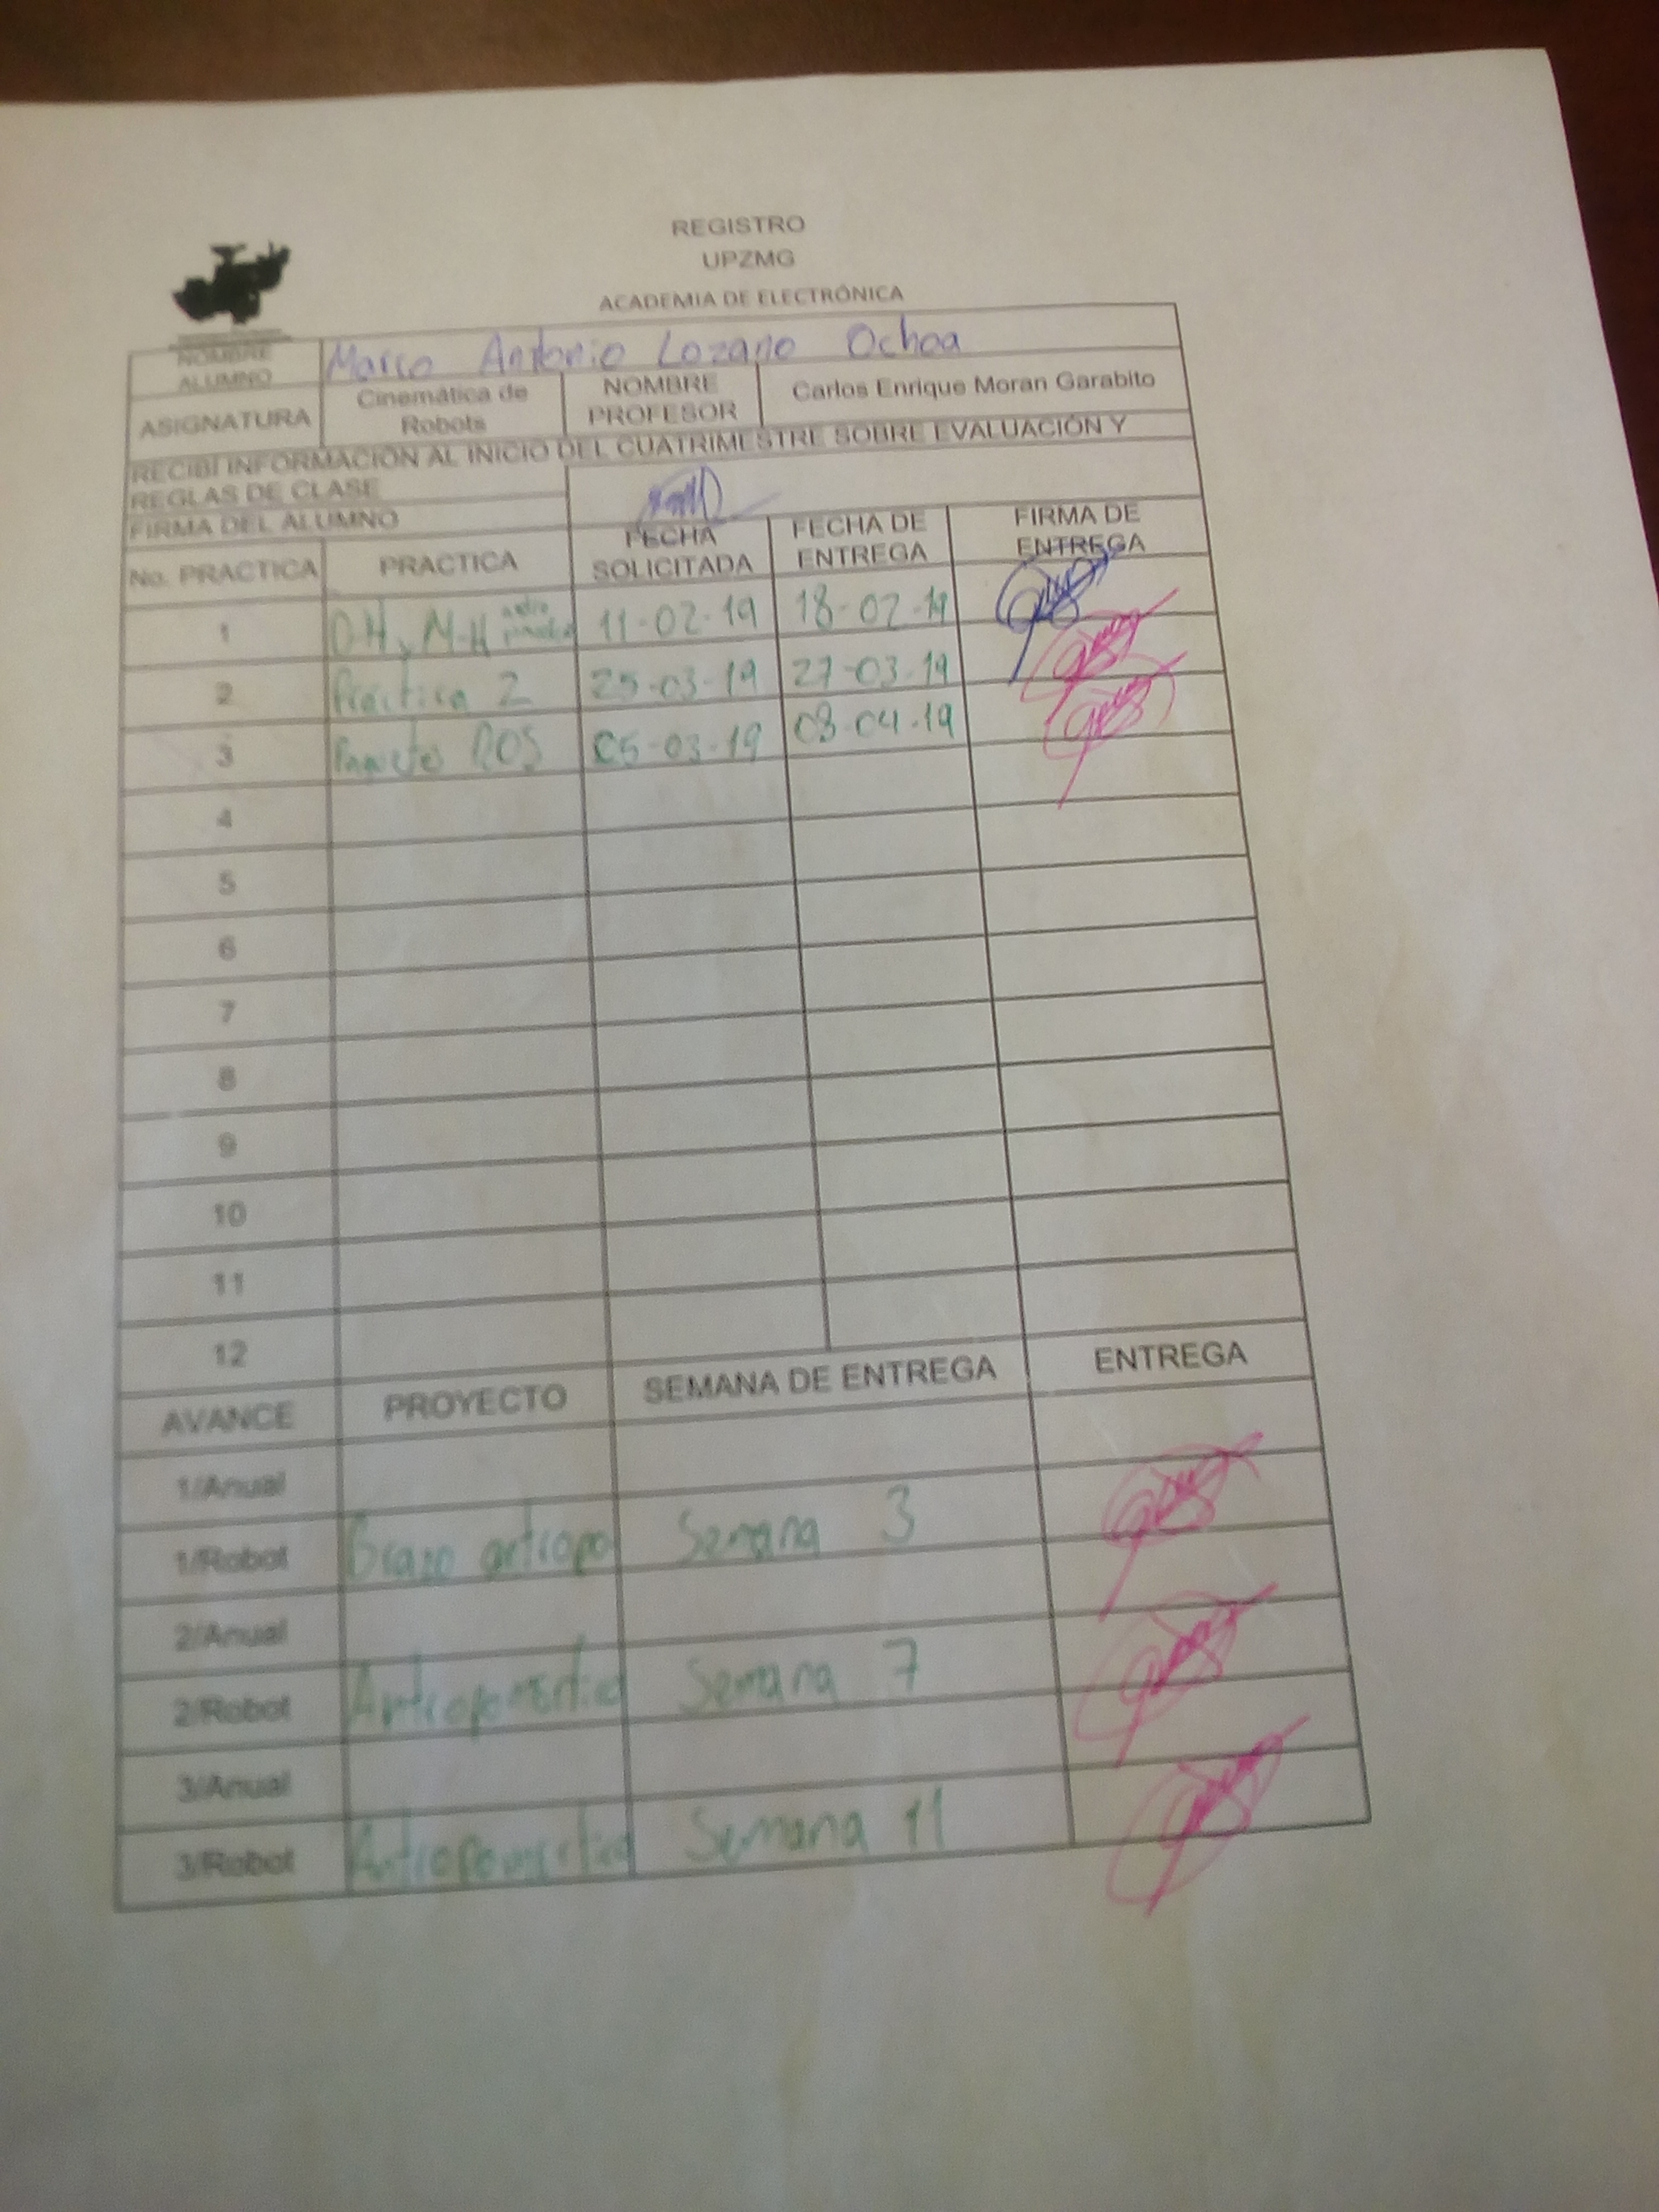 REGISTRO
UPZMG
ACADEMIA DE ELECTRÓNICA
NOMBRE ALUMNO Marco Antonio Lozano Ochoa
ASIGNATURA Cinemática de Robots NOMBRE PROFESOR Carlos Enrique Moran Garabito
RECIBÍ INFORMACIÓN AL INICIO DEL CUATRIMESTRE SOBRE EVALUACIÓN Y
REGLAS DE CLASE
FIRMA DEL ALUMNO
No. PRACTICA PRACTICA FECHA SOLICITADA FECHA DE ENTREGA FIRMA DE ENTREGA
1 D.H y M.H 11-02-19 18-02-19
2 Practica 2 25-03-19 27-03-19
3 ROS 05-03-19 08-04-19
4
5
6
7
8
9
10
11
12
AVANCE PROYECTO SEMANA DE ENTREGA ENTREGA
1/Anual
1/Robot Brazo antropo Semana 3
2/Anual
2/Robot Semana 7
3/Anual
3/Robot Semana 11